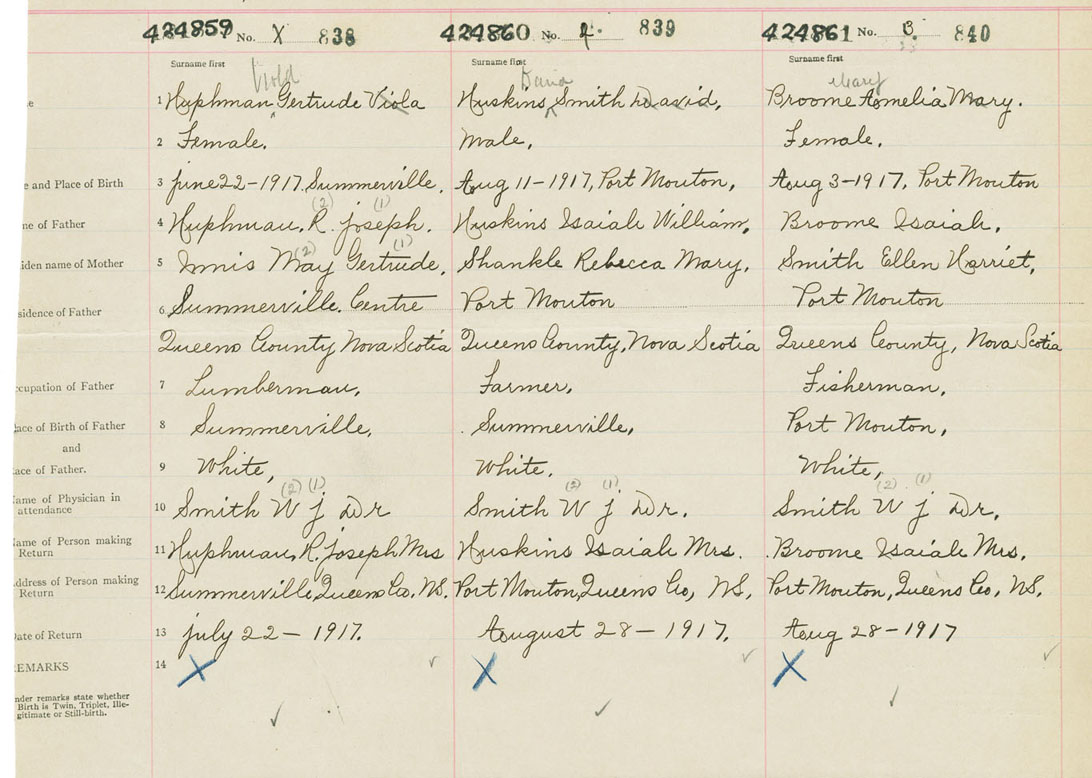 424859 No. X 838 424860 No. 2. 839 424861 No. 3 840
Surname first Surname first Surname first
Viola David Mary
1 Huphman Gertrude Viola Huskins Smith David, Broome Amelia Mary.
2 Female. Male, Female,
e and Place of Birth 3 June 22-1917 Summerville, Aug 11-1917, Port Mouton, Aug 3-1917, Port Mouton
(2) (1)
ne of Father 4 Huphman, R. Joseph. Huskins Isaiah William, Broome Isaiah,
(2) (1)
iden name of Mother 5 Innis May Gertrude, Shankle Rebecca Mary, Smith Ellen Harriet,
sidence of Father 6 Summerville Centre Port Mouton Port Mouton
Queens County Nova Scotia Queens County, Nova Scotia Queens County, Nova Scotia
ccupation of Father 7 Lumberman, Farmer, Fisherman,
ace of Birth of Father 8 Summerville, Summerville, Port Mouton,
and
ace of Father. 9 White, White, White,
(2) (1) (2) (1) (2) (1)
ame of Physician in
attendance 10 Smith W J Dr Smith W J Dr. Smith W J Dr,
ame of Person making
Return 11 Huphman, R. Joseph Mrs Huskins Isaiah Mrs. Broome Isaiah Mrs,
ddress of Person making
Return 12 Summerville, Queens Co, NS. Port Mouton, Queens Co, NS, Port Mouton, Queens Co, NS.
ate of Return 13 July 22-1917. August 28-1917, Aug 28-1917
EMARKS 14 X X X
nder remarks state whether
Birth is Twin, Triplet, Ille-
gitimate or Still-birth.